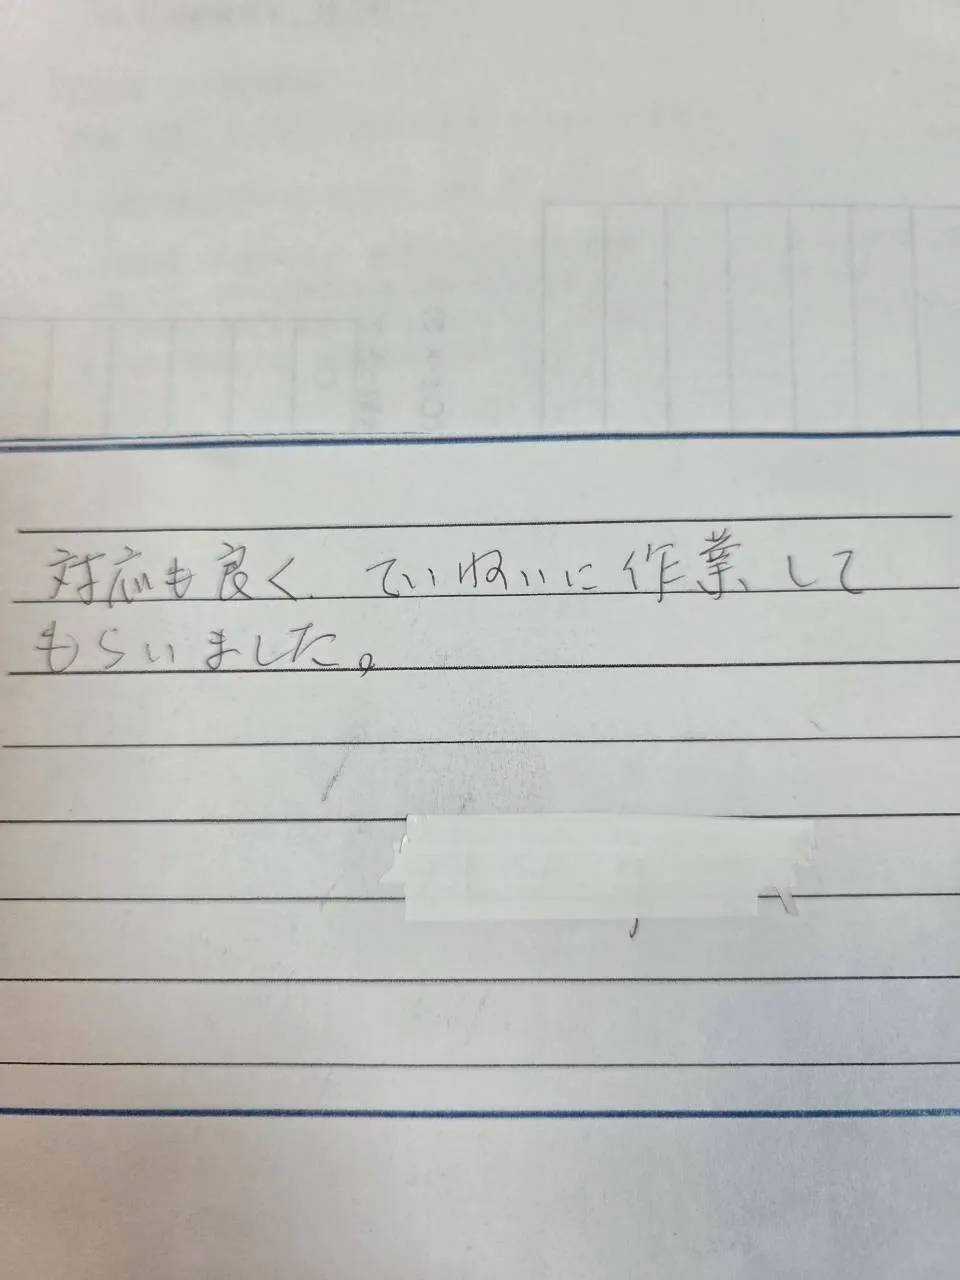 対応も良く、ていねいに作業して
もらいました。